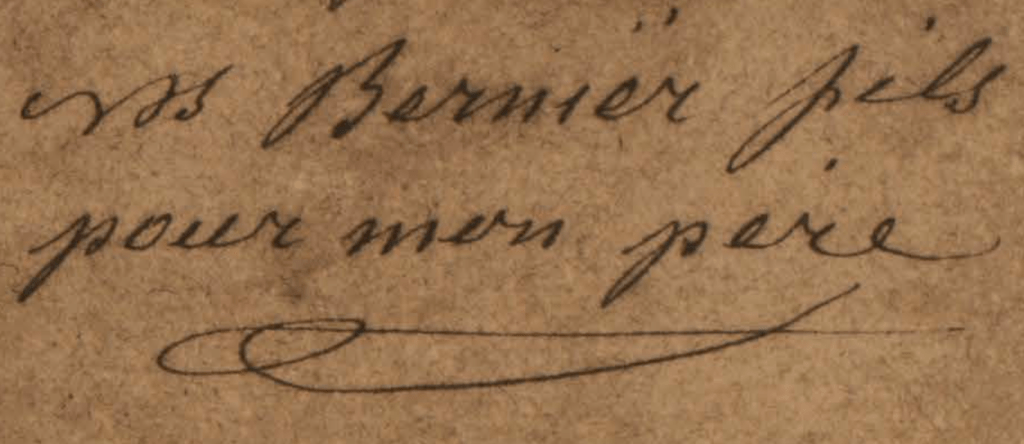 Berniër fils
pour mon pere